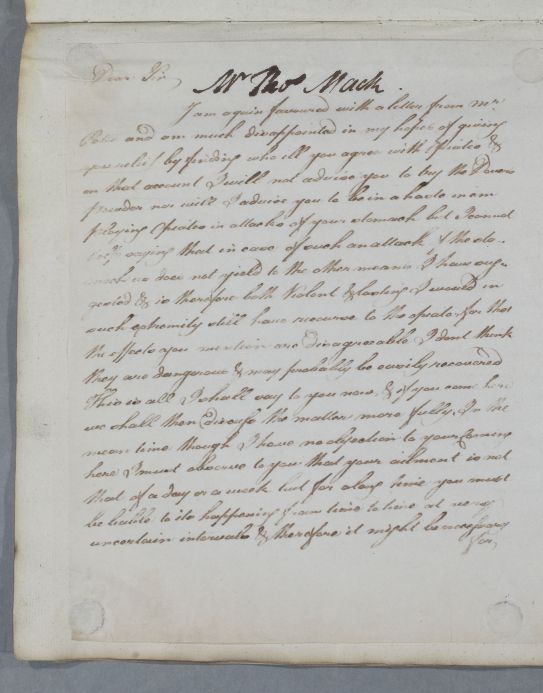 Dear Sir
Mr Thos Mack.
I am again favoured with a letter from Mr
and am much disappointed in my hopes of giving
you relief by finding who ill you agree with Opiates &
on that account I will not advise you to try the Dovers
Powder nor will I advise you to be in a haste in em
ploying Opiates in attacks of your stomach but I cannot
help saying that in case of such an attack if the sto.
mach ie does not yield to the other means I have sug-
gested & is therefore both Violent & lasting I would in
such extremity still have recourse to the opiate for tho
the effects you mention are Disagreeable I dont think
they are dangerous & may probably be easily recovered
This is all I shall say to you now, & if you come here
we shall then Discuss the matter more fully. In the
mean time though I have no objection to your Coming
here I must observe to you that your ailment is not
that of a day or a week but for a long time you must
be liable to its happening from time to time at very
uncertain intervals & therefore it might be necessary
for